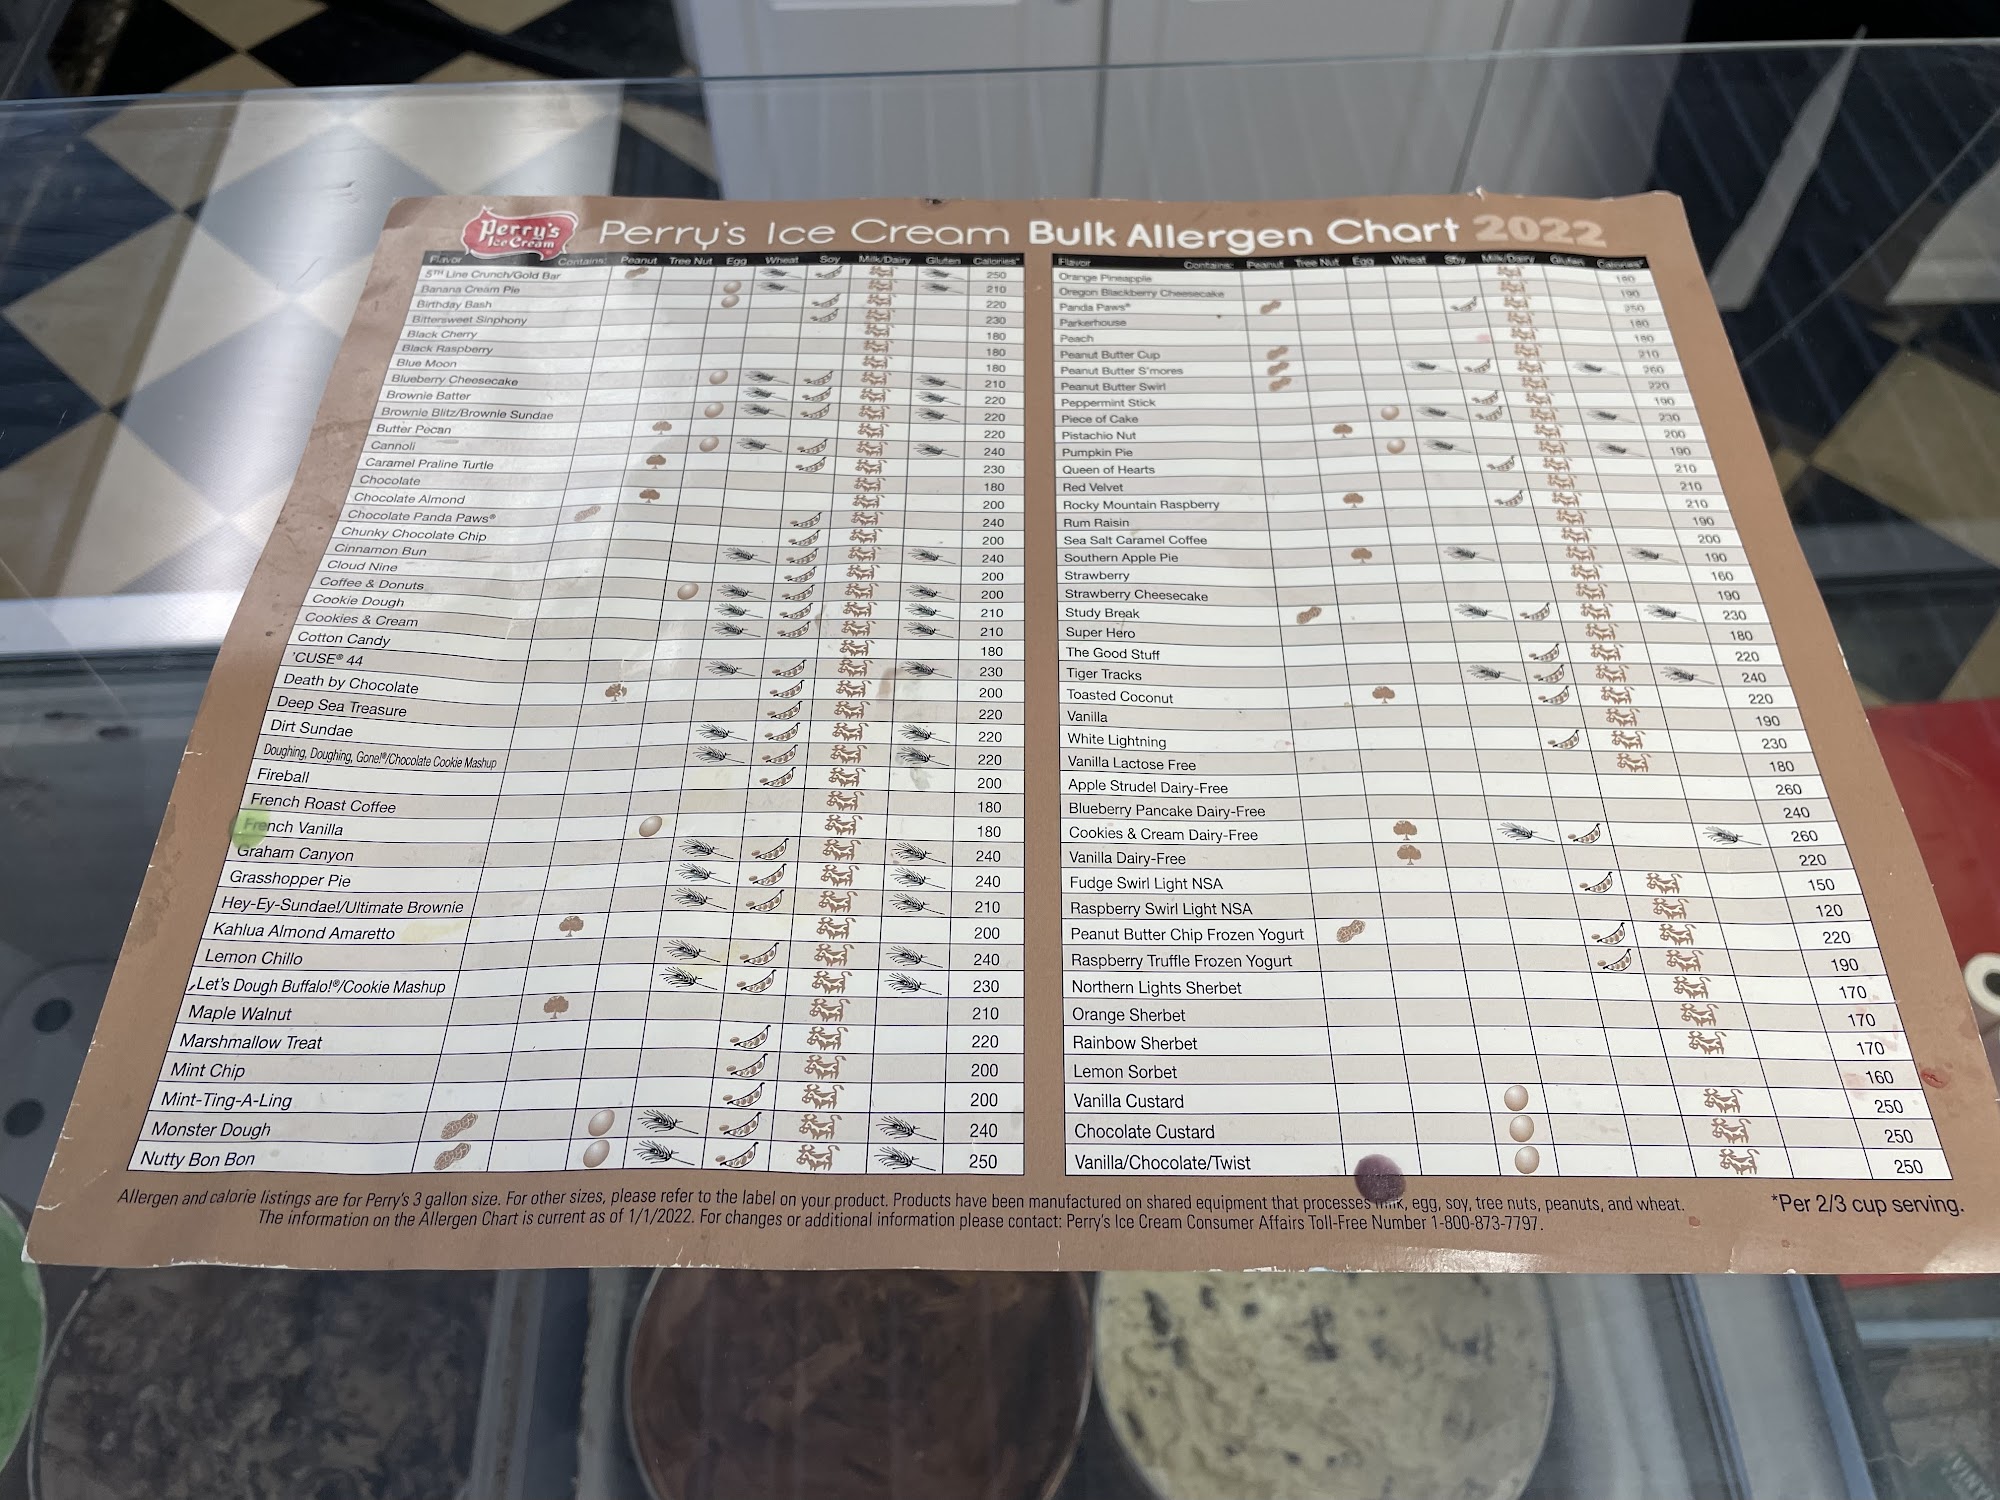 Perry's
Ice Cream
Perry's Ice Cream Bulk Allergen Chart 2022
Flavor Contains: Peanut Tree Nut Egg Wheat Soy Milk/Dairy Gluten Calories*
5TH Line Crunch/Gold Bar 250
Banana Cream Pie 210
Birthday Bash 220
Bittersweet Sinphony 230
Black Cherry 180
Black Raspberry 180
Blue Moon 180
Blueberry Cheesecake 210
Brownie Batter 220
Brownie Blitz/Brownie Sundae 220
Butter Pecan 220
Cannoli 240
Caramel Praline Turtle 230
Chocolate 180
Chocolate Almond 200
Chocolate Panda Paws® 240
Chunky Chocolate Chip 200
Cinnamon Bun 240
Cloud Nine 200
Coffee & Donuts 200
Cookie Dough 210
Cookies & Cream 210
Cotton Candy 180
'CUSE® 44 230
Death by Chocolate 200
Deep Sea Treasure 220
Dirt Sundae 220
Doughing, Doughing, Gone!®/Chocolate Cookie Mashup 220
Fireball 200
French Roast Coffee 180
French Vanilla 180
Graham Canyon 240
Grasshopper Pie 240
Hey-Ey-Sundae!/Ultimate Brownie 210
Kahlua Almond Amaretto 200
Lemon Chillo 240
Let's Dough Buffalo!®/Cookie Mashup 230
Maple Walnut 210
Marshmallow Treat 220
Mint Chip 200
Mint-Ting-A-Ling 200
Monster Dough 240
Nutty Bon Bon 250
Flavor Contains: Peanut Tree Nut Egg Wheat Soy Milk/Dairy Gluten Calories*
Orange Pineapple 160
Oregon Blackberry Cheesecake 190
Panda Paws® 250
Parkerhouse 180
Peach 180
Peanut Butter Cup 210
Peanut Butter S'mores 260
Peanut Butter Swirl 220
Peppermint Stick 190
Piece of Cake 230
Pistachio Nut 200
Pumpkin Pie 190
Queen of Hearts 210
Red Velvet 210
Rocky Mountain Raspberry 210
Rum Raisin 190
Sea Salt Caramel Coffee 200
Southern Apple Pie 190
Strawberry 160
Strawberry Cheesecake 190
Study Break 230
Super Hero 180
The Good Stuff 220
Tiger Tracks 240
Toasted Coconut 220
Vanilla 190
White Lightning 230
Vanilla Lactose Free 180
Apple Strudel Dairy-Free 260
Blueberry Pancake Dairy-Free 240
Cookies & Cream Dairy-Free 260
Vanilla Dairy-Free 220
Fudge Swirl Light NSA 150
Raspberry Swirl Light NSA 120
Peanut Butter Chip Frozen Yogurt 220
Raspberry Truffle Frozen Yogurt 190
Northern Lights Sherbet 170
Orange Sherbet 170
Rainbow Sherbet 170
Lemon Sorbet 160
Vanilla Custard 250
Chocolate Custard 250
Vanilla/Chocolate/Twist 250
Allergen and calorie listings are for Perry's 3 gallon size. For other sizes, please refer to the label on your product. Products have been manufactured on shared equipment that processes milk, egg, soy, tree nuts, peanuts, and wheat.
The information on the Allergen Chart is current as of 1/1/2022. For changes or additional information please contact: Perry's Ice Cream Consumer Affairs Toll-Free Number 1-800-873-7797.
*Per 2/3 cup serving.